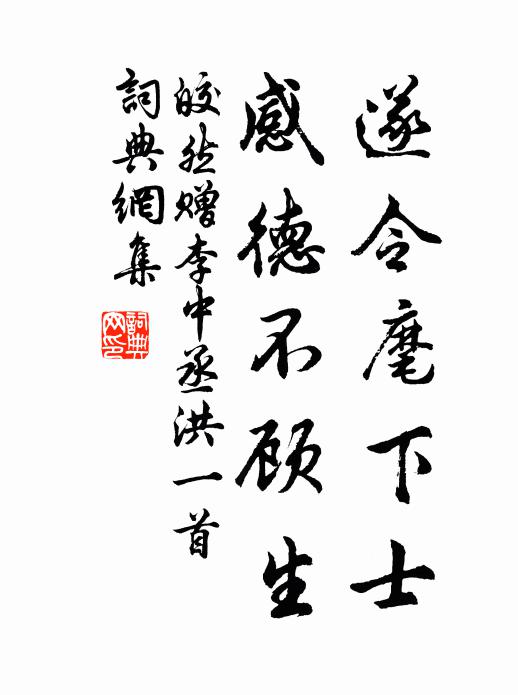 遂令麾下士
感德不顾生
皎然赠李中丞洪一首
詞典網集
詞典
网印